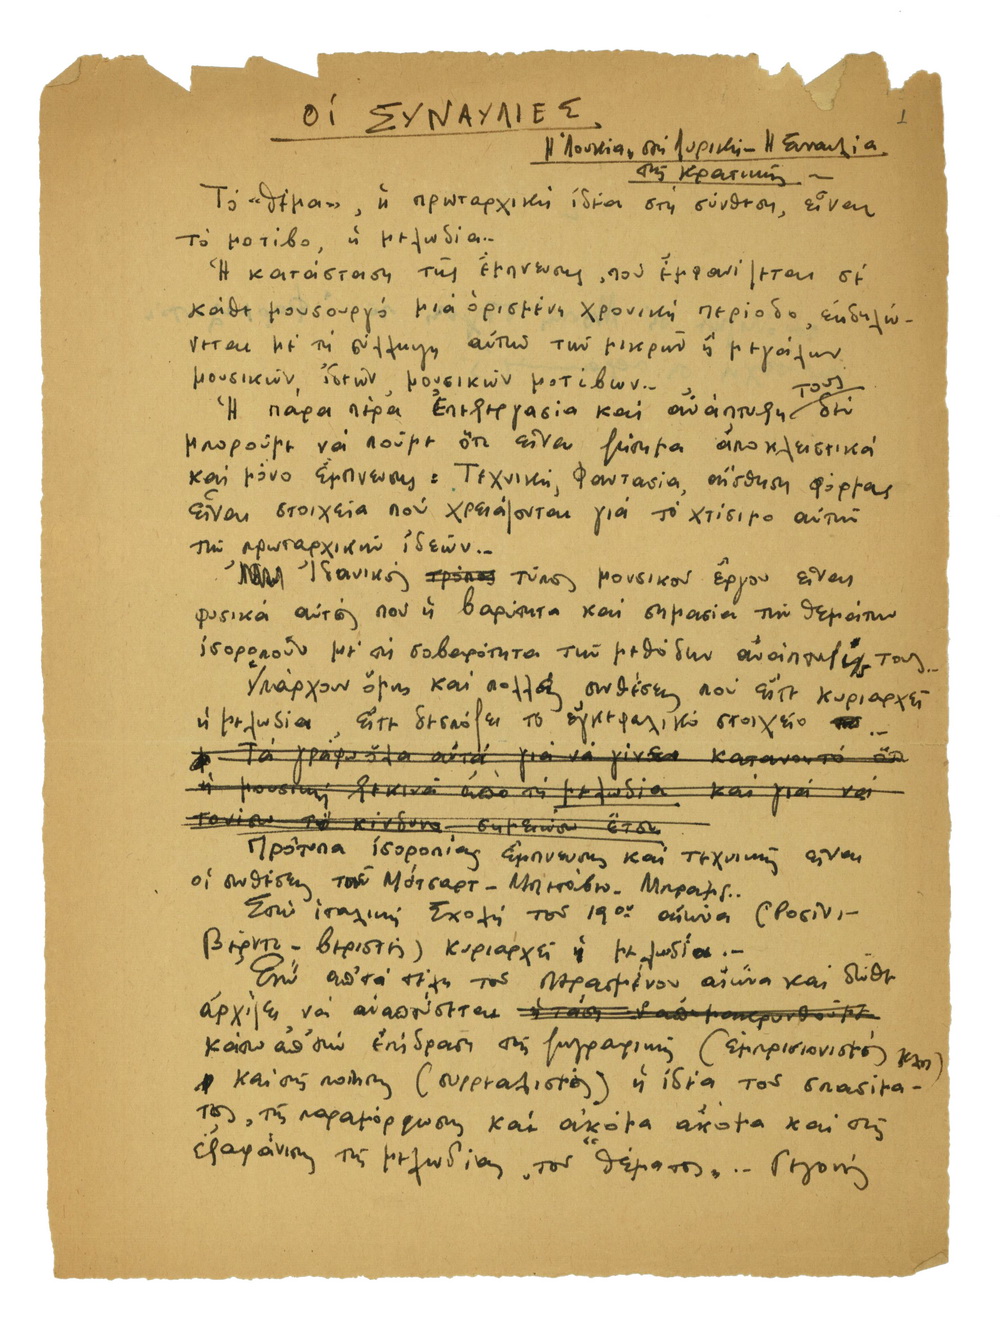 1
ΟΙ ΣΥΝΑΥΛΙΕΣ
Ἡ "Λουκία" στή Λυρική – Ἡ Συναυλία
τῆς Κρατικῆς –
Τό «θέμα», ἡ πρωταρχική ἰδέα στή σύνθεση, εἶναι
τό μοτίβο, ἡ μελωδία.–
Ἡ κατάσταση τῆς ἔμπνευσης, πού ἐμφανίζεται σέ
κάθε μουσουργό μιά ὁρισμένη χρονική περίοδο, ἐκδηλώ-
νεται μέ τή σύλληψη αὐτῶν τῶν μικρῶν ἤ μεγάλων
μουσικῶν ἰδεῶν, μουσικῶν μοτίβων.–
τους
Ἡ πάρα πέρα ἐπεξεργασία καί ἀνάπτυξη δέν
μποροῦμε νά ποῦμε ὅτι εἶναι ζήτημα ἀποκλειστικά
καί μόνο ἔμπνευσης: Τεχνική, Φαντασία, αἴσθηση φόρμας
εἶναι στοιχεῖα πού χρειάζονται γιά τό χτίσιμο αὐτῶν
τῶν πρωταρχικῶν ἰδεῶν.–
Ἰδανικός τρόπος τύπος μουσικοῦ ἔργου εἶναι
φυσικά αὐτός πού ἡ βαρύτητα καί σημασία τῶν θεμάτων
ἰσοροποῦν μέ τή σοβαρότητα τῶν μεθόδων ἀνάπτυξής τους.–
Ὑπάρχουν ὅμως καί πολλές συνθέσεις πού εἴτε κυριαρχεῖ
ἡ μελωδία, εἴτε δεσπόζει τό ἐγκεφαλικό στοιχεῖο .–
Τά γράφω ὅλα αὐτά γιά νά γίνει κατανοητό ὅτι
ἡ μουσική ξεκινᾶ ἀπό τή μελωδία καί γιά νά
τονίσω τό κίνδυνο σημειώσω ἔτσι
Πρότυπα ἰσοροπίας ἔμπνευσης καί τεχνικῆς εἶναι
οἱ συνθέσεις τῶν Μότσαρτ – Μπετόβεν – Μπραμς..
Στήν ἰταλική Σχολή τοῦ 19ου αἰώνα (Ροσίνι –
Βέρντι – βεριστές) κυριαρχεῖ ἡ μελωδία.–
Ἐνῶ ἀπ' τά τέλη τοῦ περασμένου αἰώνα καί δῶθε
ἀρχίζει νά ἀναπτύσεται
κάτω ἀπ' τήν ἐπίδραση τῆς ζωγραφικῆς (ἐμπρεσιονιστές κλπ)
καί τῆς ποίησης (συρρεαλιστές) ἡ ἰδέα τοῦ σπασίμα-
τος, τῆς παραμόρφωσης καί ἀκόμα ἀκόμα καί τῆς
ἐξαφάνισης τῆς μελωδίας, τοῦ "θέματος".– Γεγονός